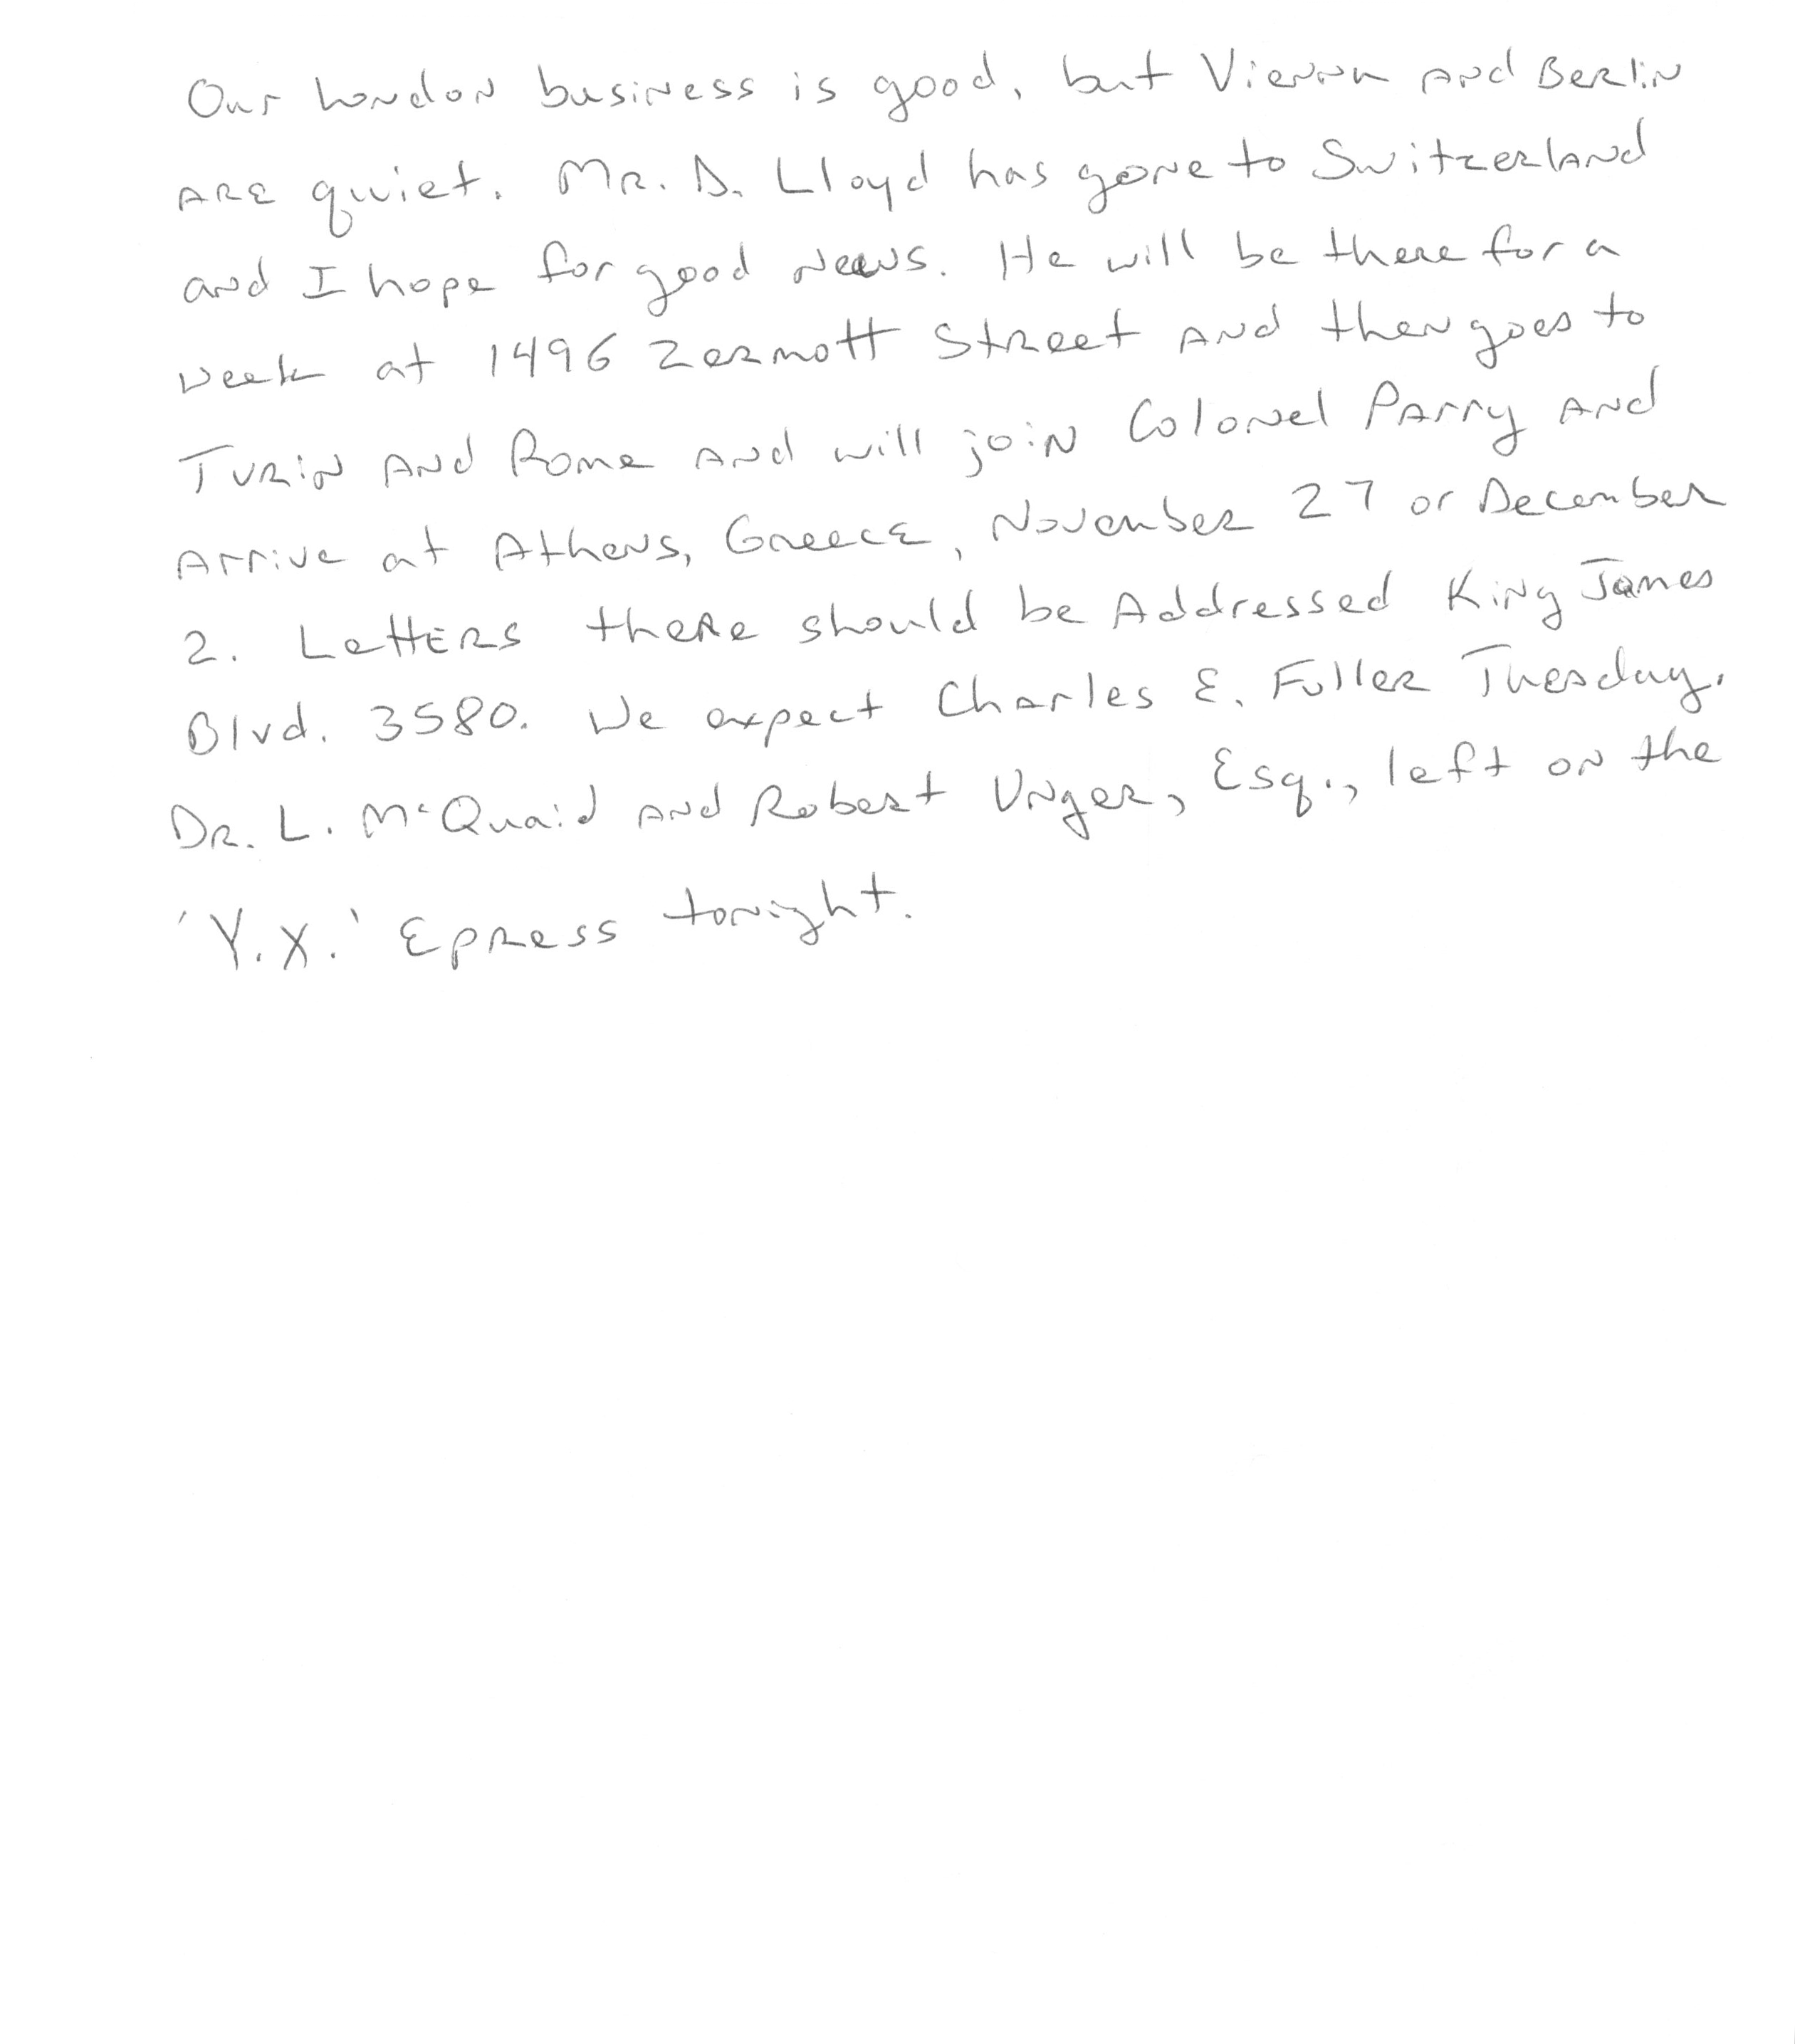 Our London business is good, but Vienna and Berlin
are quiet. Mr. D. Lloyd has gone to Switzerland
and I hope for good news. He will be there for a
week at 1496 Zermott Street and then goes to
Turin and Rome and will join Colonel Parry and
arrive at Athens, Greece, November 27 or December
2. Letters there should be addressed King James
Blvd. 3580. We expect Charles E. Fuller Tuesday.
Dr. L. McQuaid and Robert Unger, Esq., left on the
'Y.X.' Epress tonight.